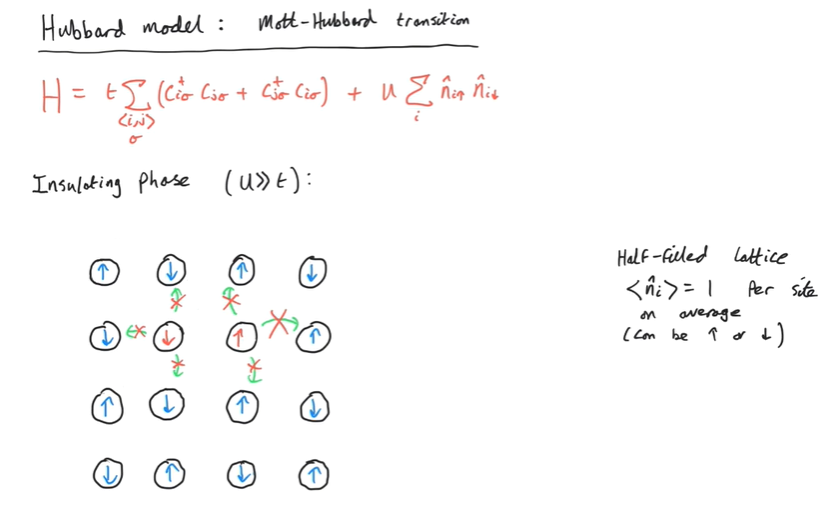 Hubbard model: Mott-Hubbard transition
H = t ∑ (c†iσ cjσ + c†jσ ciσ) + U ∑ n̂i↑ n̂i↓
<i,j> i
σ
Insulating phase (U≫t):
↑ ↓ ↑ ↓
↓ ↓ ↑ ↑
↑ ↓ ↑ ↓
↓ ↑ ↓ ↑
Half-filled lattice
<n̂i> = 1 per site
on average
(can be ↑ or ↓)